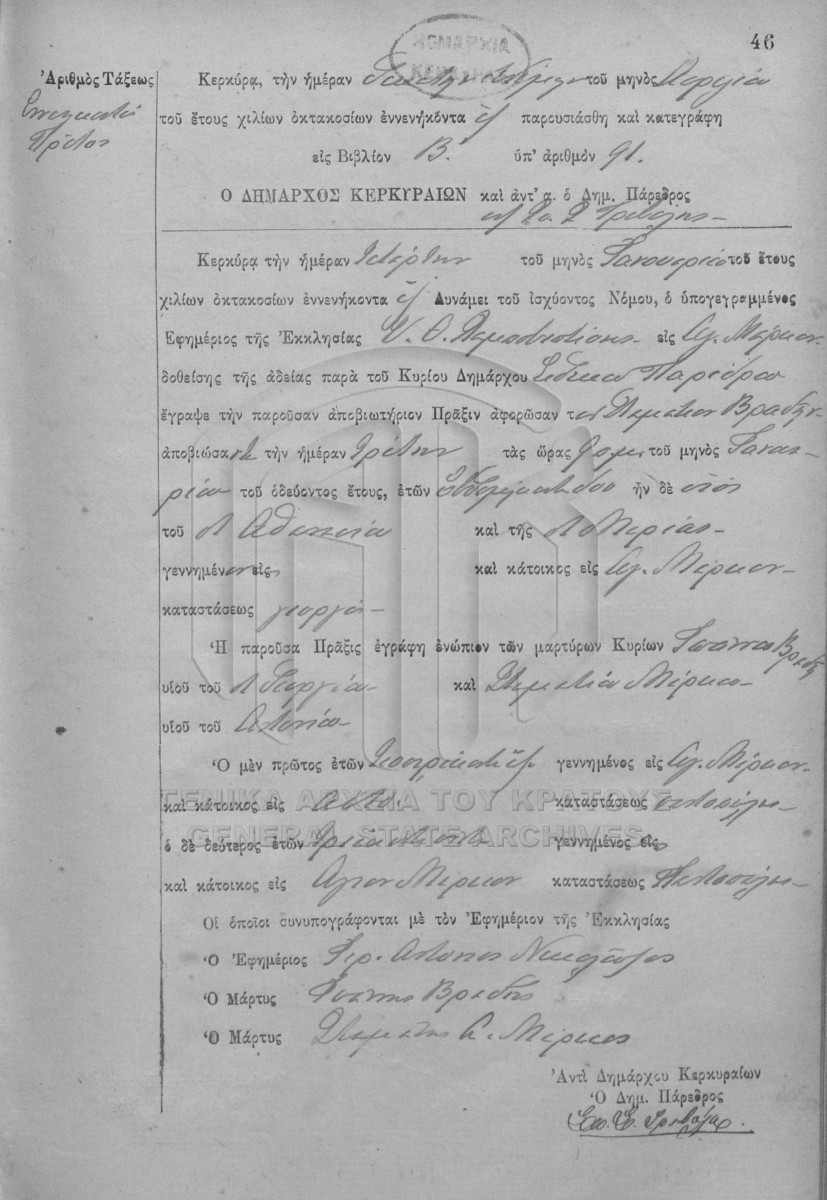 46
ΝΟΜΑΡΧΙΑ
ΚΕΡΚΥΡΑΣ
Ἀριθμὸς Τάξεως
Πρῶτος
Κερκύρᾳ, τὴν ἡμέραν τοῦ μηνὸς
τοῦ ἔτους χιλίων ὀκτακοσίων ἐννενήκοντα ἓξ παρουσιάσθη καὶ κατεγράφη
εἰς Βιβλίον Β' ὑπ' ἀριθμὸν 91.
Ο ΔΗΜΑΡΧΟΣ ΚΕΡΚΥΡΑΙΩΝ καὶ ἀντ' α. ὁ Δημ. Πάρεδρος
Κερκύρᾳ τὴν ἡμέραν Τετάρτην τοῦ μηνὸς Ἰανουαρίου τοῦ ἔτους
χιλίων ὀκτακοσίων ἐννενήκοντα ἓξ Δυνάμει τοῦ ἰσχύοντος Νόμου, ὁ ὑπογεγραμμένος
Ἐφημέριος τῆς Ἐκκλησίας Υ. Θ. εἰς Ἁγ. Μάρκον
δοθείσης τῆς ἀδείας παρὰ τοῦ Κυρίου Δημάρχου Εἰδικοῦ Παρέδρου
ἔγραψε τὴν παροῦσαν ἀποβιωτήριον Πρᾶξιν ἀφορῶσαν τὸν Σταμάτιον Βραδῆν
ἀποβιώσαντα τὴν ἡμέραν Τρίτην τὰς ὥρας 9 π.μ. τοῦ μηνὸς Ἰανουα-
ρίου τοῦ ὁδεύοντος ἔτους, ἐτῶν ἑβδομήκοντα δύο ἦν δὲ υἱὸς
τοῦ π Ἀθανασίου καὶ τῆς π Μαρίας
γεννημένον εἰς καὶ κάτοικος εἰς Ἁγ. Μάρκον
καταστάσεως γεωργός
Ἡ παροῦσα Πρᾶξις ἐγράφη ἐνώπιον τῶν μαρτύρων Κυρίων Ἰωάννου Βραδῆ
υἱοῦ τοῦ π Γεωργίου καὶ Σταματίου Μάρκου
υἱοῦ τοῦ Ἀντωνίου
Ὁ μὲν πρῶτος ἐτῶν γεννημένος εἰς Ἁγ. Μάρκον
καὶ κάτοικος εἰς αὐτό. καταστάσεως παντοπώλης
ὁ δὲ δεύτερος ἐτῶν τριάκοντα γεννημένος εἰς
καὶ κάτοικος εἰς Ἅγιον Μάρκον καταστάσεως Παντοπώλης
Οἱ ὁποῖοι συνυπογράφονται μὲ τὸν Ἐφημέριον τῆς Ἐκκλησίας
Ὁ Ἐφημέριος Ἱερ. Ἀντώνιος
Ὁ Μάρτυς Ἰωάννης Βραδῆς
Ὁ Μάρτυς Σταμάτης Α. Μάρκος
Ἀντὶ Δημάρχου Κερκυραίων
Ὁ Δημ. Πάρεδρος
ΓΕΝΙΚΑ ΑΡΧΕΙΑ ΤΟΥ ΚΡΑΤΟΥΣ
GENERAL STATE ARCHIVES